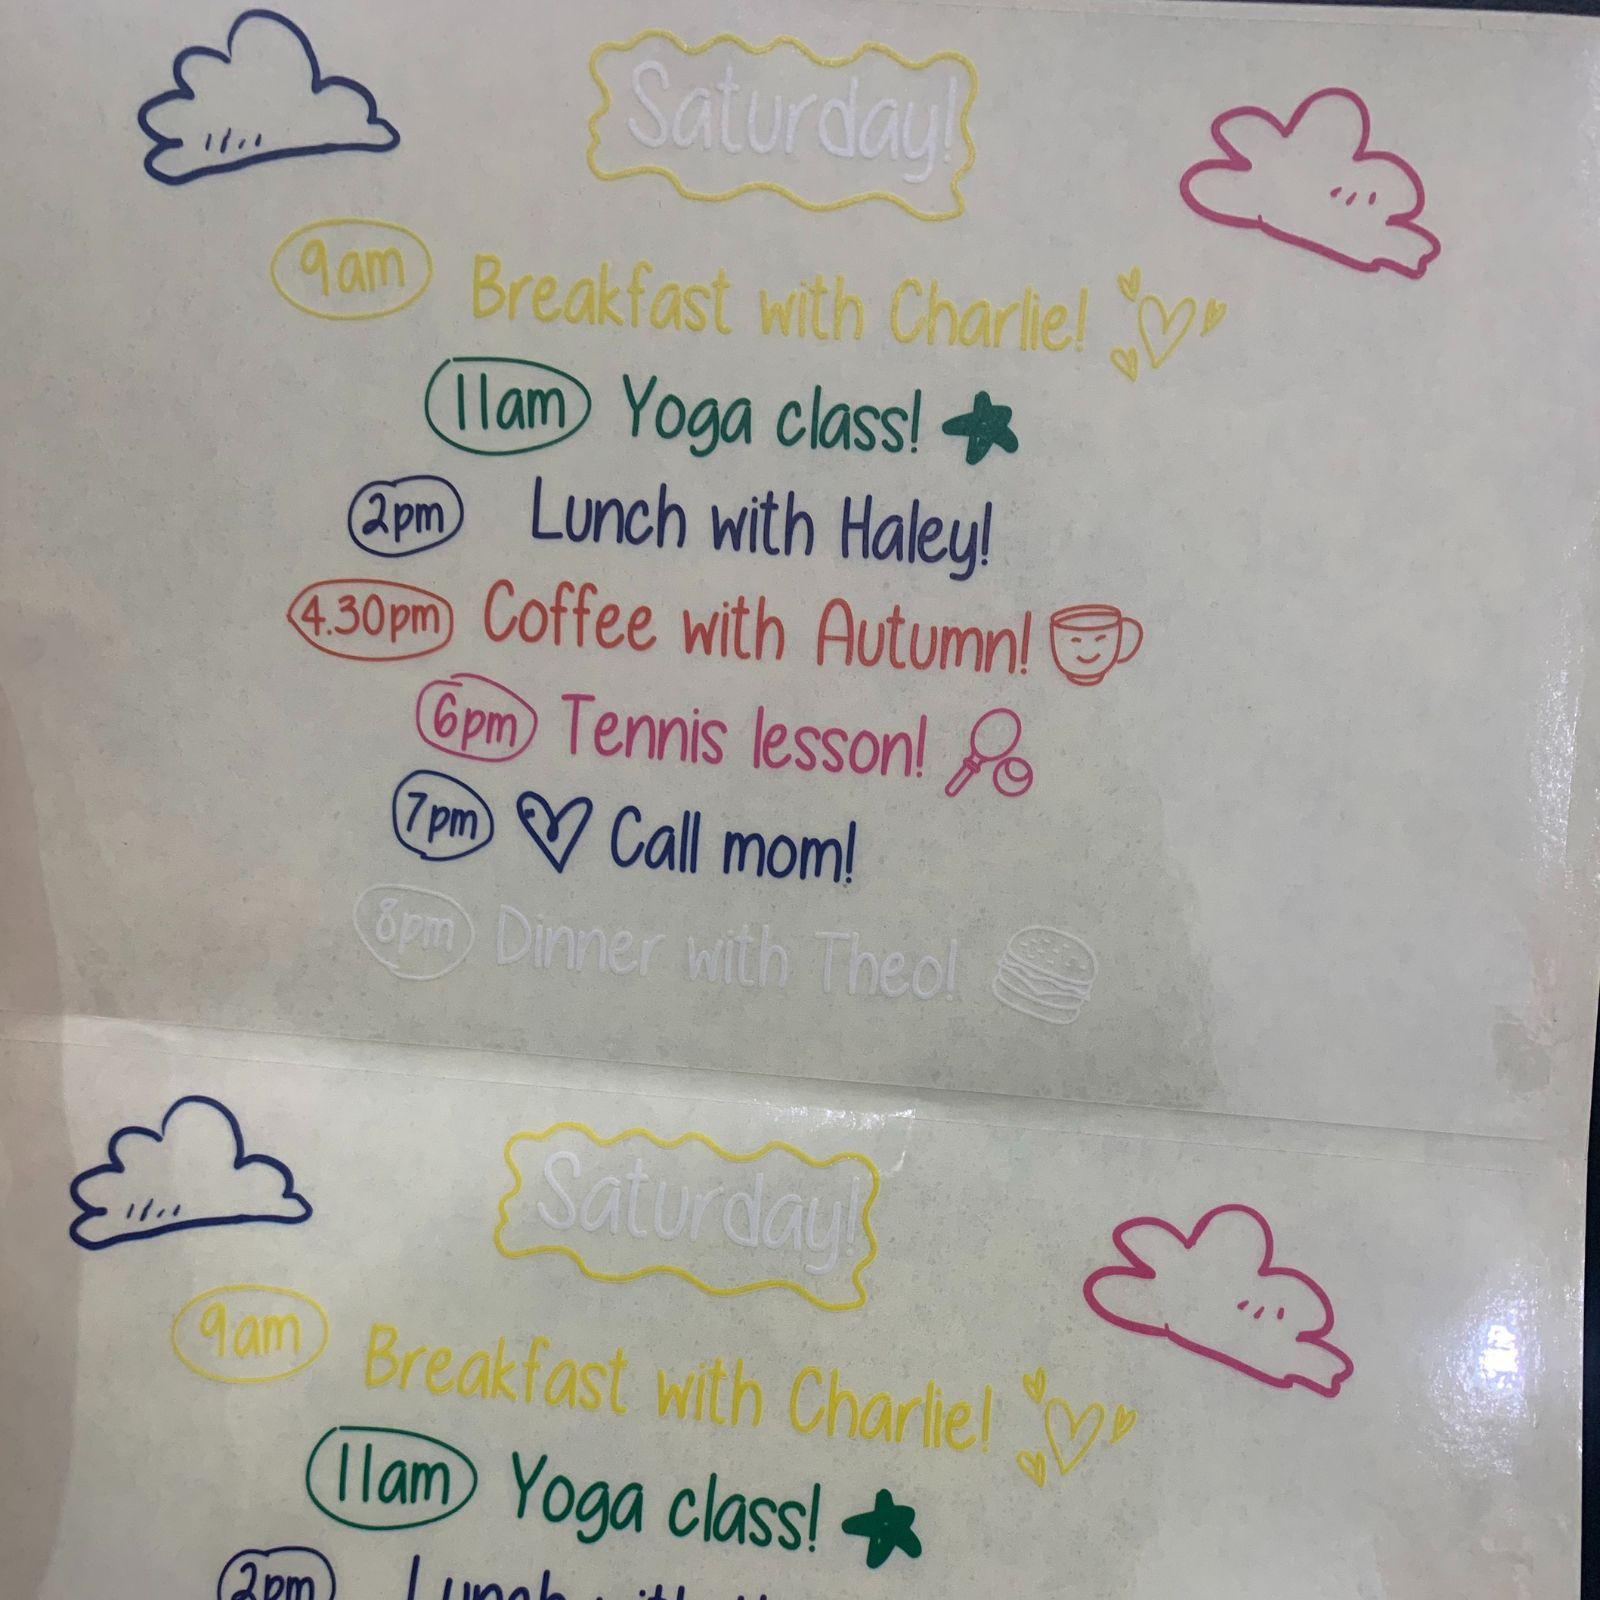 Saturday!
9am Breakfast with Charlie!
11am Yoga class!
2pm Lunch with Haley!
4.30pm Coffee with Autumn!
6pm Tennis lesson!
7pm Call mom!
8pm Dinner with Theo!
Saturday!
9am Breakfast with Charlie!
11am Yoga class!
2pm Lunch with